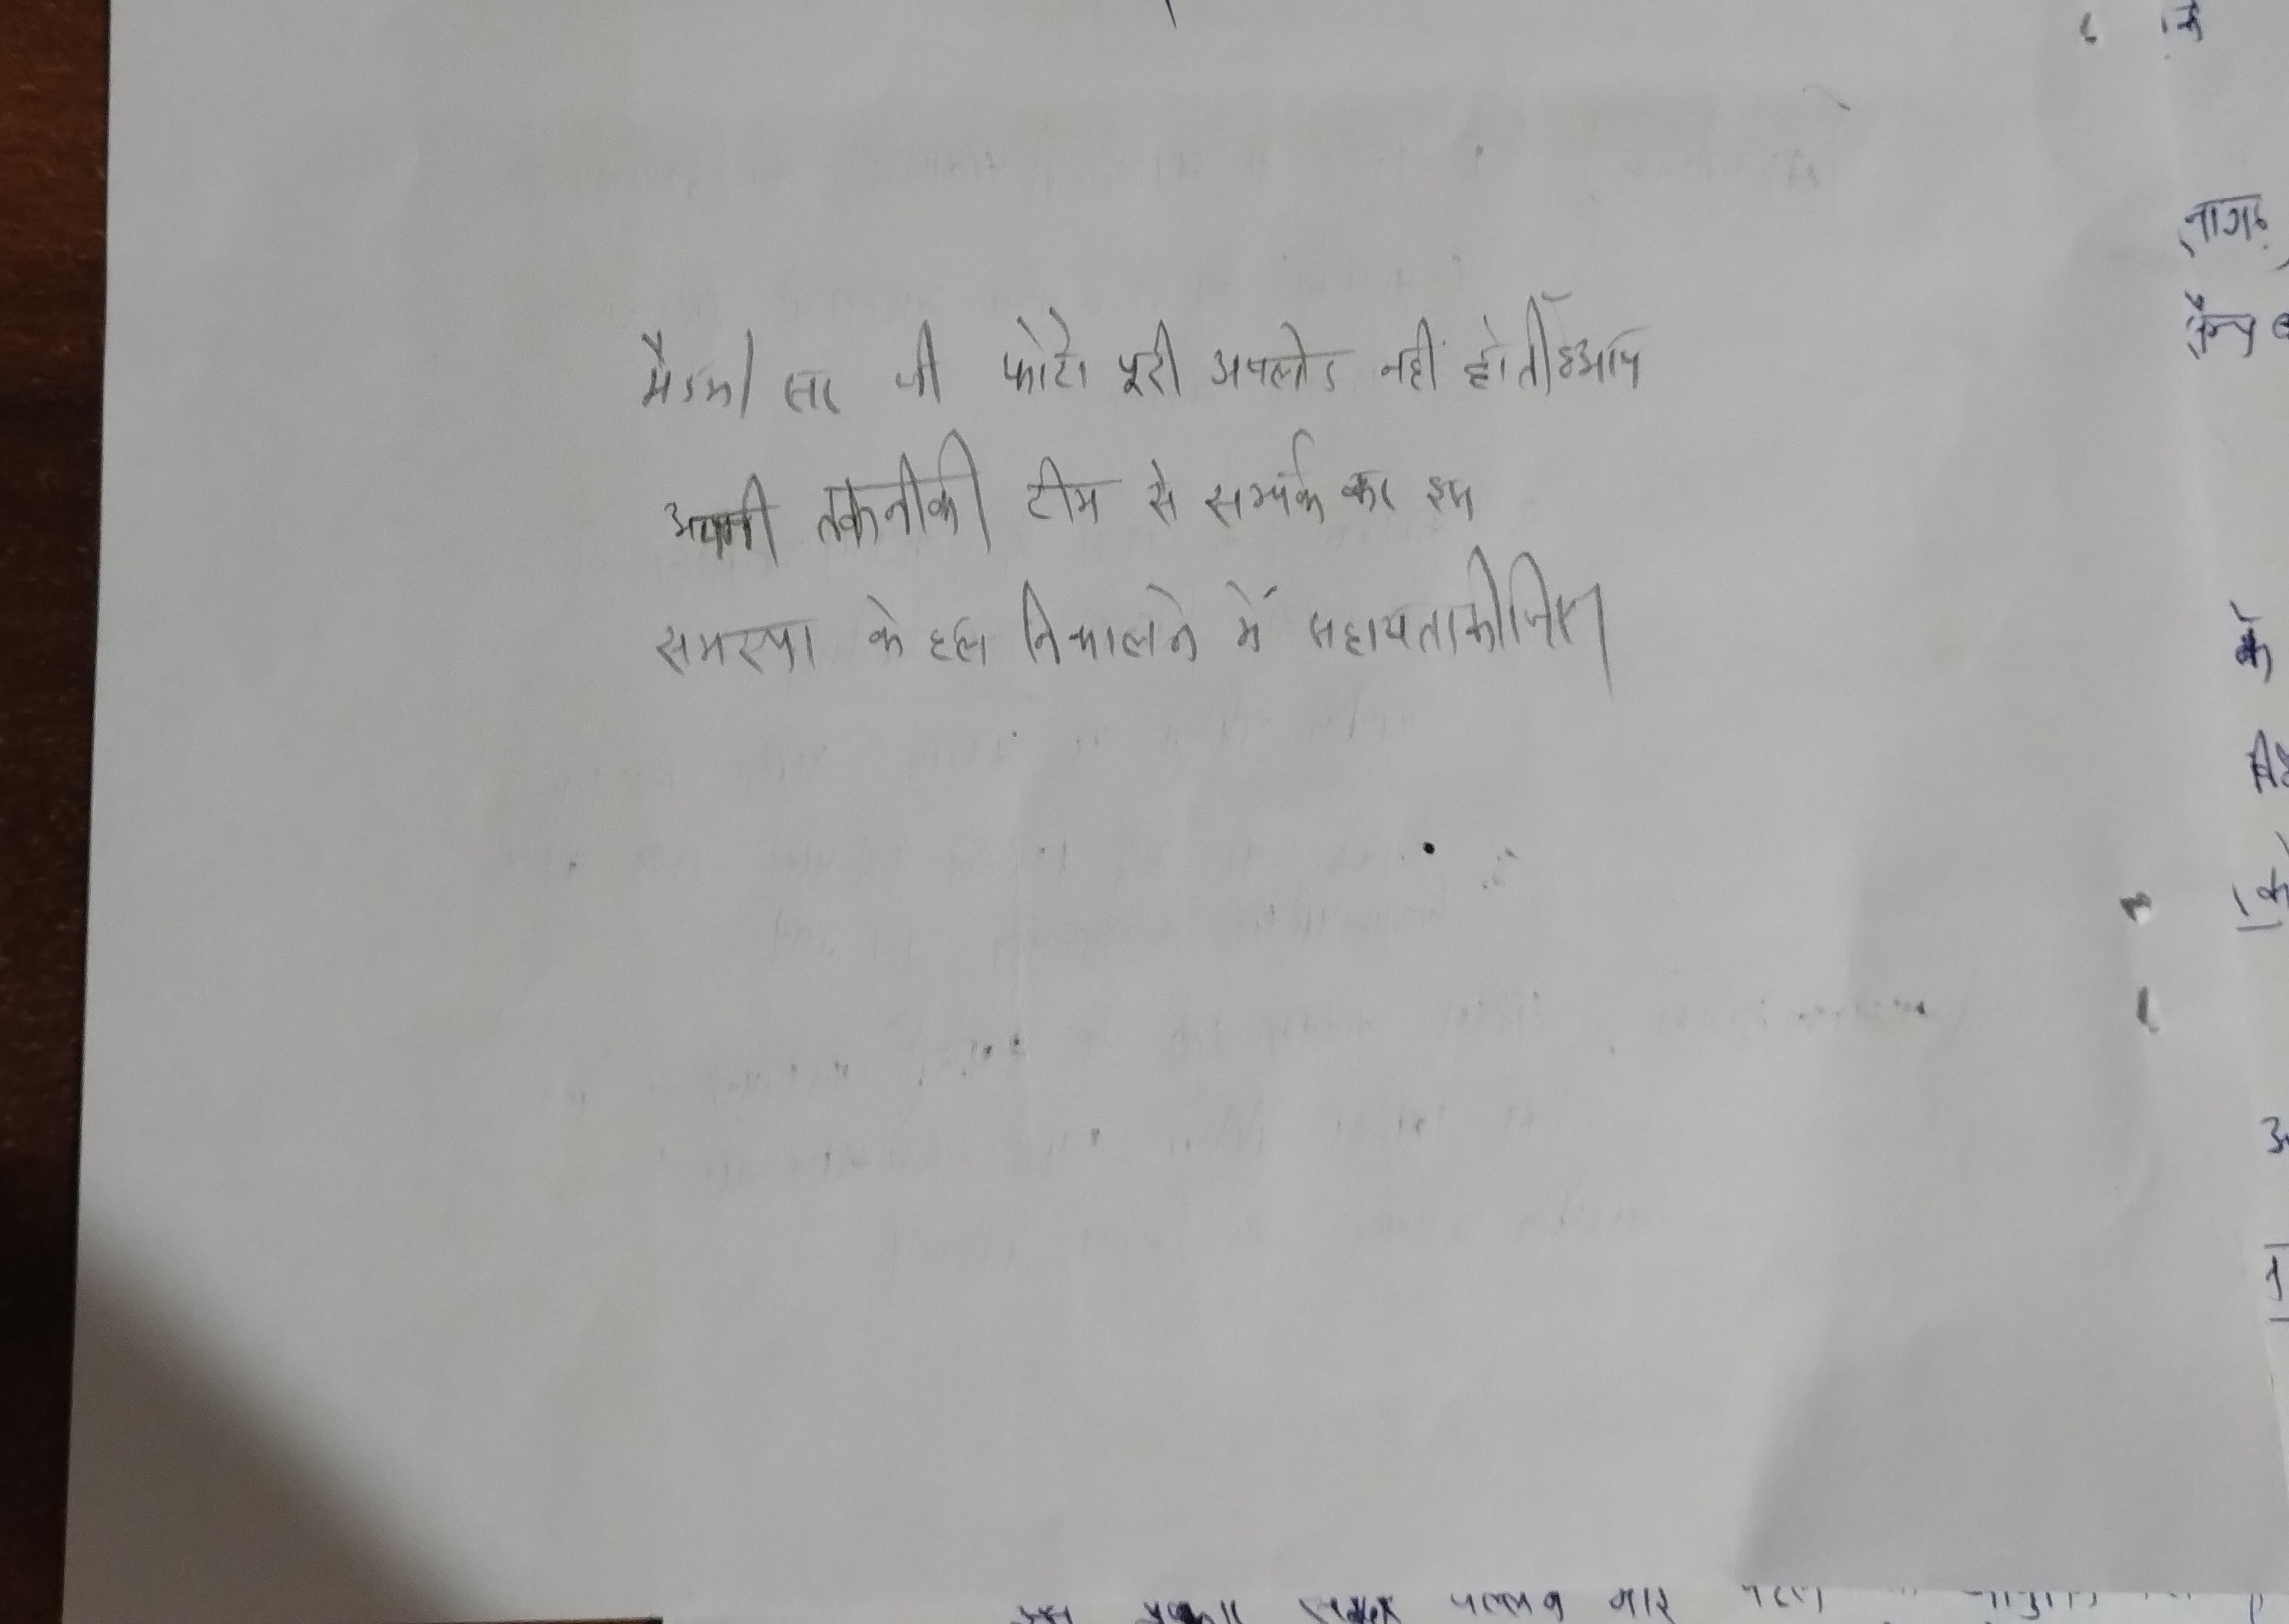 के
नाग
सैन्य
मैडम/सर जी फोटो पूरी अपलोड नहीं होती है आप
अपनी तकनीकी टीम से सम्पर्क कर इस
समस्या के हल निकालने में सहायता कीजिए।
के